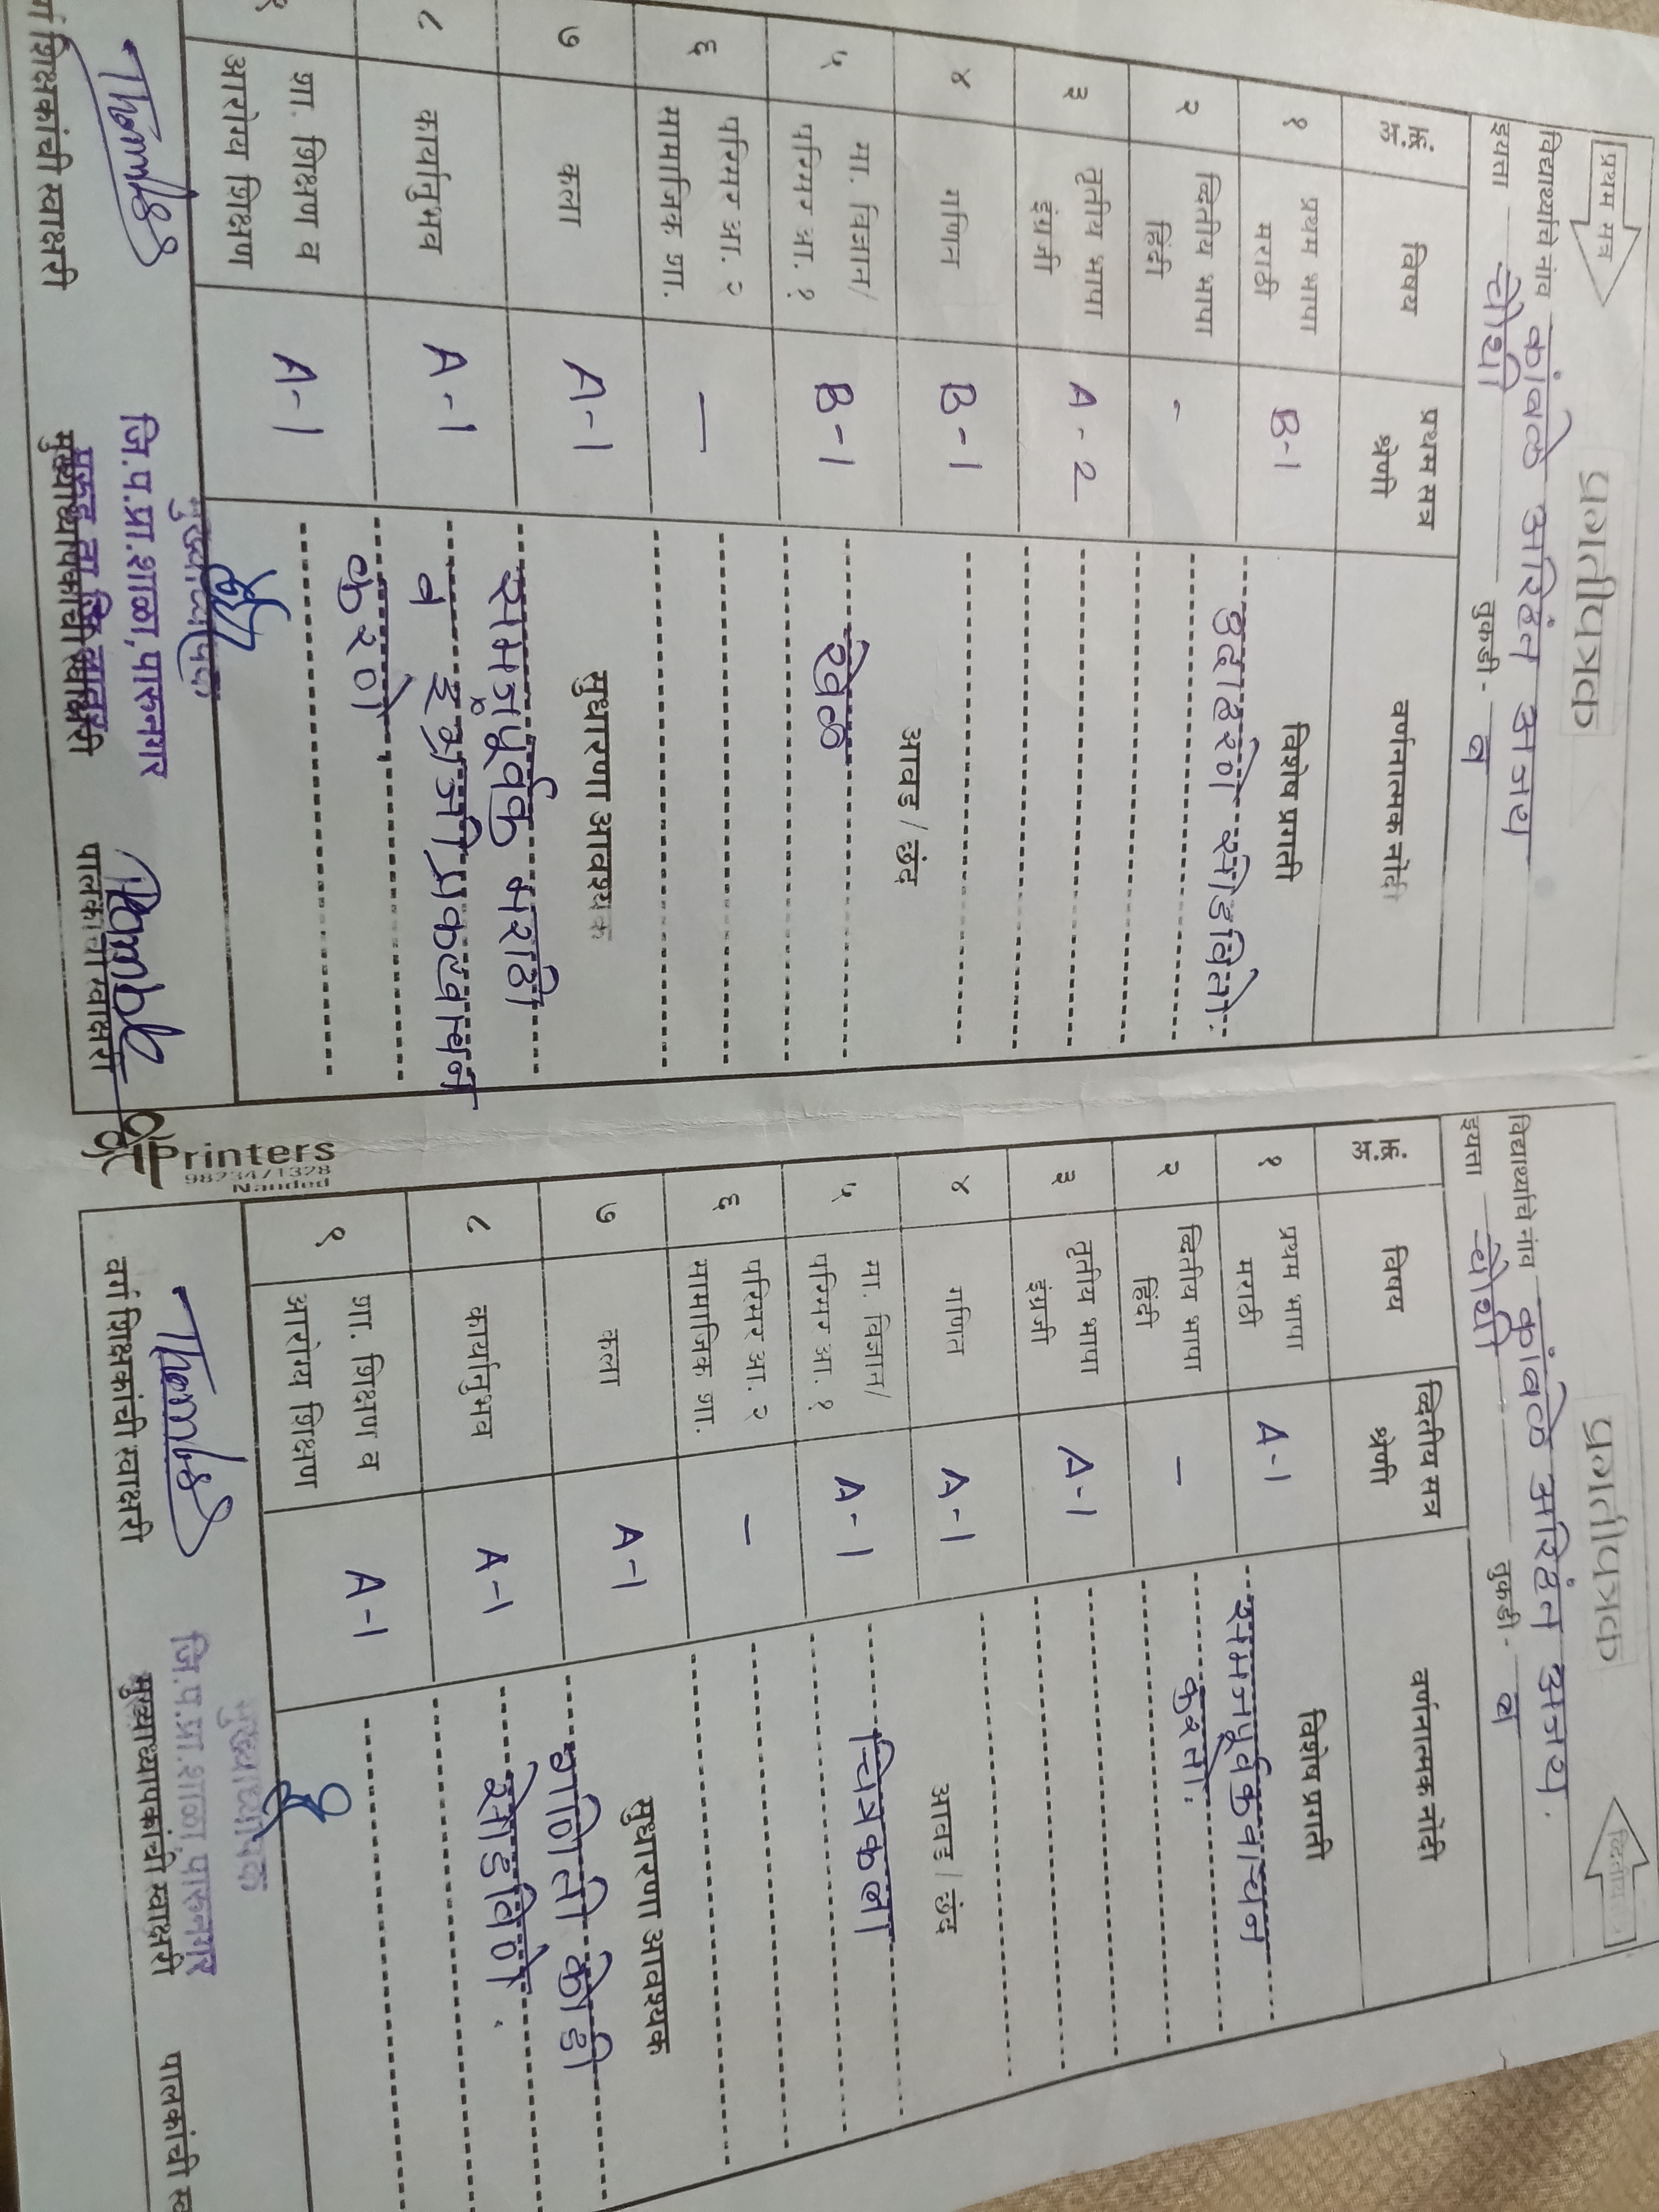 प्रथम सत्र
प्रगतीपत्रक
विद्यार्थ्याचे नांव कांबळे अरिहंत अजय
इयत्ता चौथी तुकडी - ब
अ. क्र. विषय प्रथम सत्र श्रेणी वर्णनात्मक नोंदी
१ प्रथम भाषा मराठी B-1
२ द्वितीय भाषा हिंदी -
३ तृतीय भाषा इंग्रजी A-2
४ गणित B-1
५ सा. विज्ञान/ परिसर अ. १ B-1
६ परिसर अ. २ सामाजिक शा. —
७ कला A-1
८ कार्यानुभव A-1
९ शा. शिक्षण व आरोग्य शिक्षण A-1
विशेष प्रगती
उदाहरणे सोडवितो.
आवड / छंद
खेळ
सुधारणा आवश्यक
समजपूर्वक मराठी
व इंग्रजी प्रकटवाचन
करणे.
मुख्याध्यापक
जि.प.प्रा.शाळा, पारुनगर
वर्ग शिक्षकांची स्वाक्षरी मुख्याध्यापकांची स्वाक्षरी पालकांची स्वाक्षरी
Printers
9823471328
Nanded
द्वितीय
प्रगतीपत्रक
विद्यार्थ्याचे नांव कांबळे अरिहंत अजय.
इयत्ता चौथी तुकडी - ब
अ. क्र. विषय द्वितीय सत्र श्रेणी वर्णनात्मक नोंदी
१ प्रथम भाषा मराठी A-1
२ द्वितीय भाषा हिंदी —
३ तृतीय भाषा इंग्रजी A-1
४ गणित A-1
५ सा. विज्ञान/ परिसर अ. १ A-1
६ परिसर अ. २ सामाजिक शा. —
७ कला A-1
८ कार्यानुभव A-1
९ शा. शिक्षण व आरोग्य शिक्षण A-1
विशेष प्रगती
समजपूर्वक वाचन
करतो.
आवड / छंद
चित्रकला
सुधारणा आवश्यक
गणिती कोडी
सोडविणे.
मुख्याध्यापक
जि.प.प्रा.शाळा, पारुनगर
वर्ग शिक्षकांची स्वाक्षरी मुख्याध्यापकांची स्वाक्षरी पालकांची